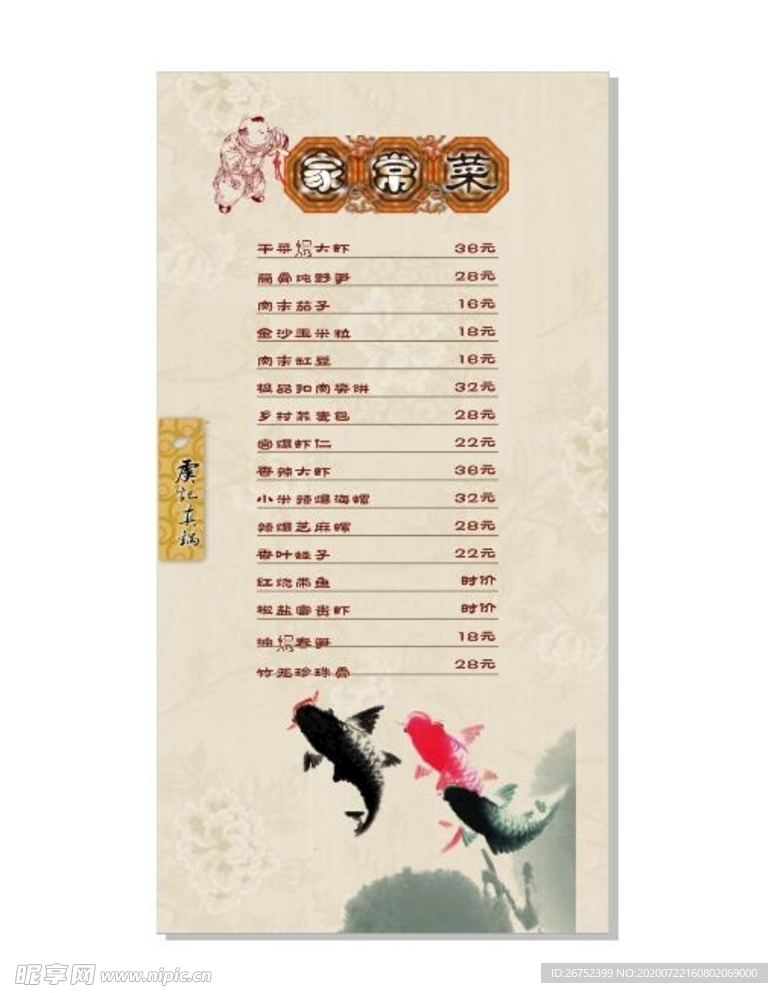 家常菜
干菜焗大虾 36元
筒骨炖野笋 28元
肉末茄子 16元
金沙玉米粒 18元
肉末缸豆 16元
极品扣肉夹饼 32元
乡村荞麦包 28元
宫爆虾仁 22元
香辣大虾 36元
小米辣爆海螺 32元
辣爆芝麻螺 28元
香叶蛏子 22元
红烧带鱼 时价
椒盐富贵虾 时价
油焗春笋 18元
竹荪珍珠骨 28元
虞记真锅
昵享网 www.nipic.cn
ID:26752399 NO:20200722160802069000